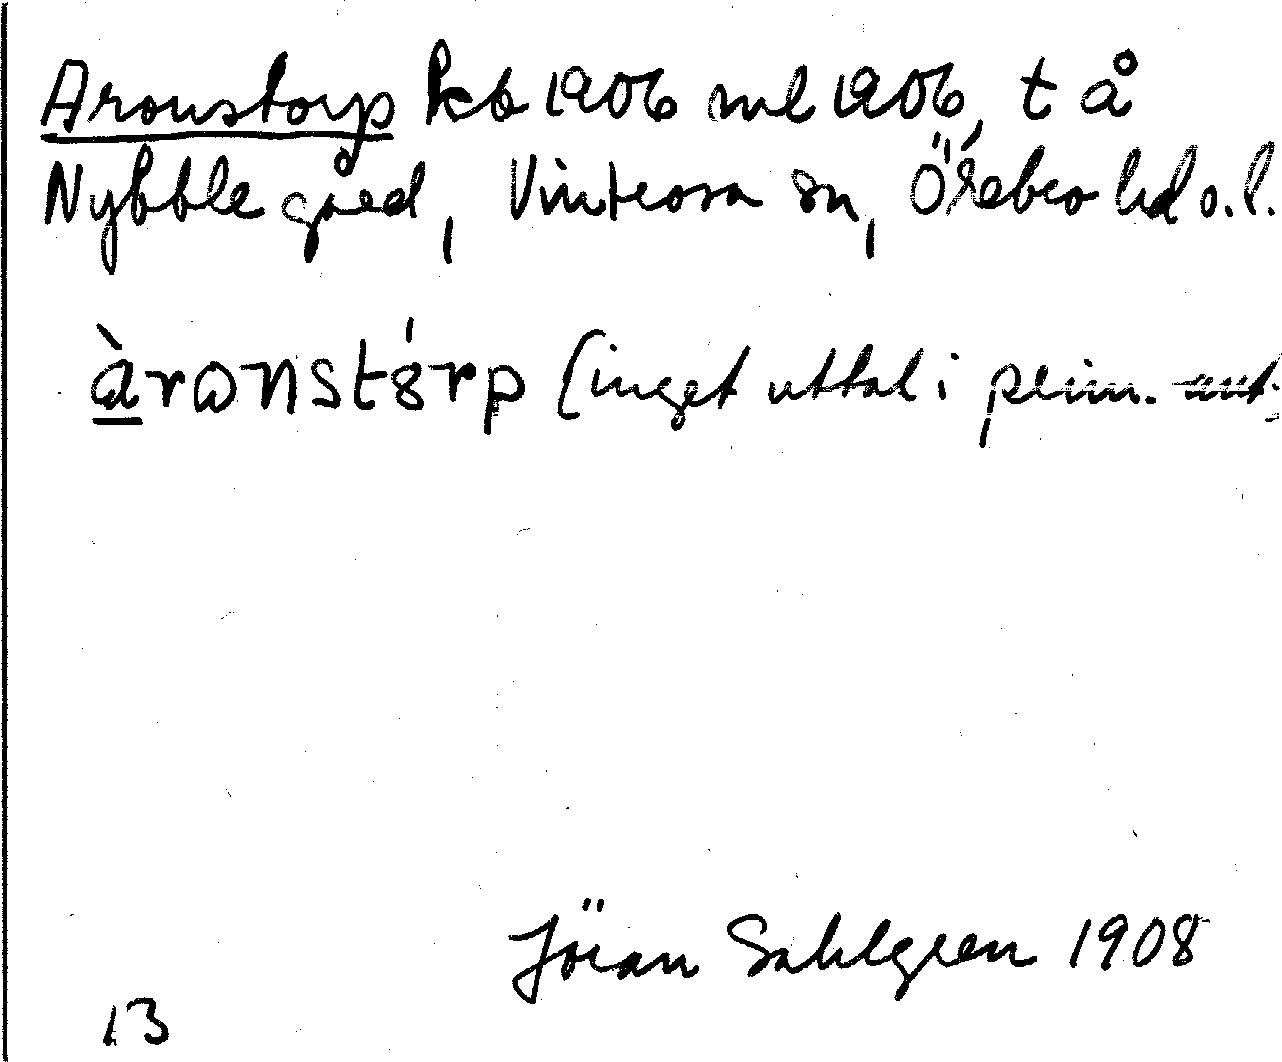 Aronstorp kb 1906 ml 1906, t å
Nybble gård, Vintrosa sn, Örebro hd o. l.
àronstórp (inget uttal i prim.
Jöran Sahlgren 1908
13